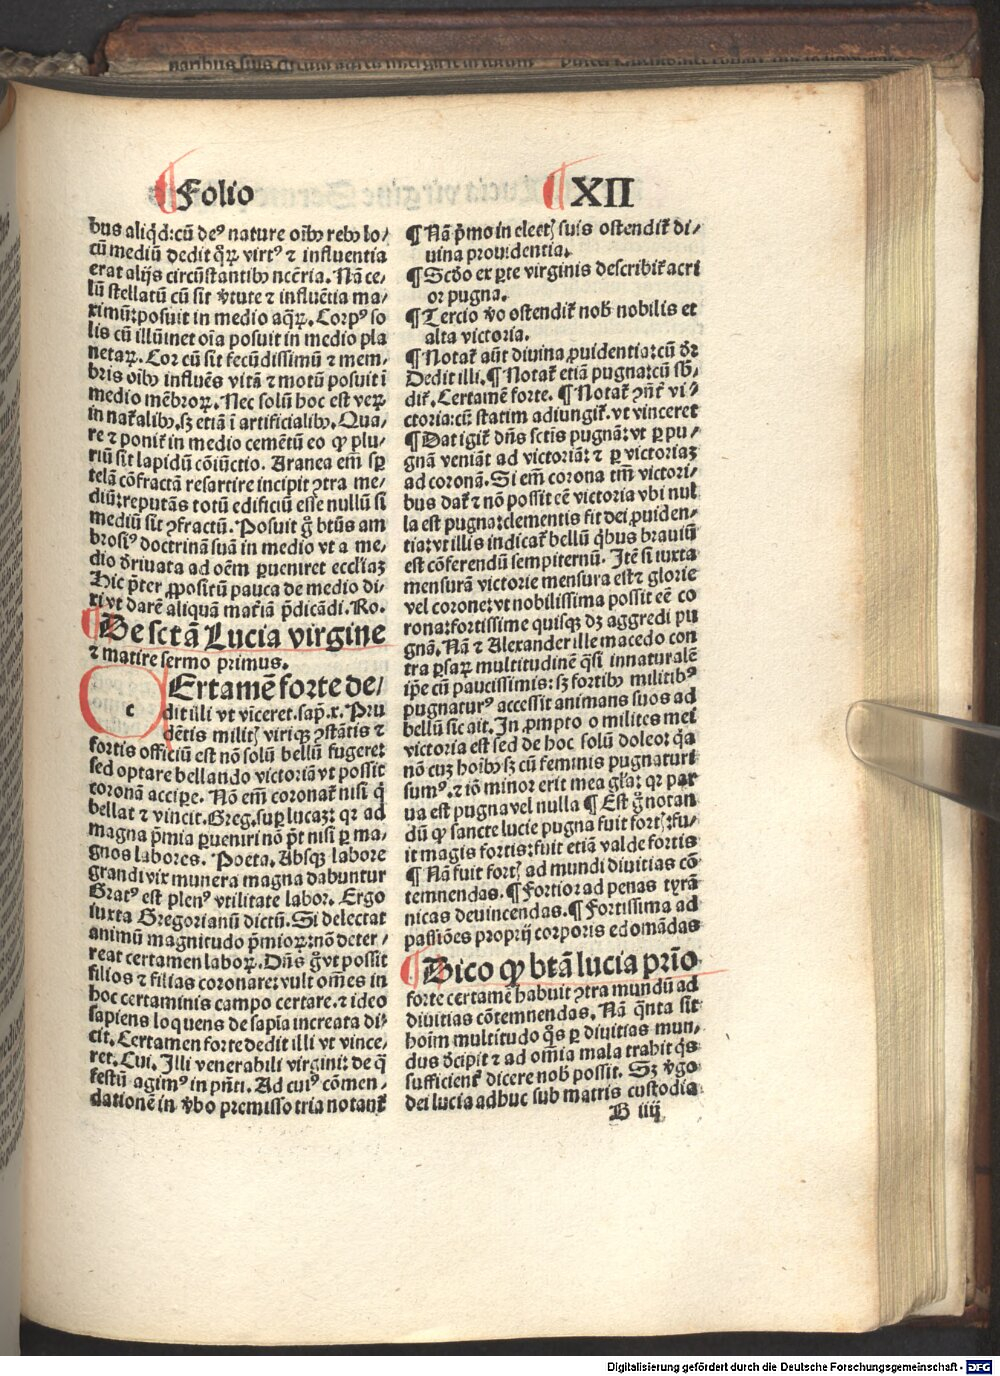 ¶ Folio
¶ XII
bus aliqđ: cũ deꝰ nature oĩbꝰ rebꝰ lo/
cũ mediũ dedit q̃ꝝ virtꝰ ⁊ influentia
erat alijs circũstantibꝰ nc̃eria. Nã ce/
lũ stellatũ cũ sit v̓tute ⁊ influẽtia ma/
ximũ: posuit in medio aq̃ꝝ. Corpꝰ so
lis cũ illũinet oĩa posuit in medio pla
netaꝝ. Cor cũ sit fecũdissimũ ⁊ mem/
bris oĩbꝰ influẽs vitã ⁊ motũ posuit ĩ
medio mẽbroꝝ. Nec solũ hoc est veꝝ
in nãkalibꝰ, sꝫ etiã ĩ artificialibꝰ. Qua/
re ⁊ ponit̃ in medio cemẽtũ eo ꝙ plu/
riũ sit lapidũ cõiũctio. Aranea em̃ sꝑ
telã cõfractã resartire incipit ꝯtra me/
diũ: reputãs totũ edificiũ esse nullũ si
mediũ sit ꝯfractũ. Posuit g̃ btũs am
brosiꝰ doctrinã suã in medio vt a me/
dio d̓riuata ad oẽm ꝑueniret eccl̃iaꝫ
Hic p̃ter ꝓpositũ pauca de medio di/
xi vt darẽ aliquã mat̃iã p̃dicãdi. Ro.
¶ De sctã Lucia virgine
⁊ matire sermo primus.
c Ertamẽ forte de/
dit illi vt vĩceret. sap̃. x. Pru
dẽtis militꝭ viriqꝫ ꝯstãtis ⁊
fortis officiũ est nõ solũ bellũ fugere:
sed optare bellando victoriã vt possit
coronã accipe. Nõ em̃ coronat̃ nisi q̃
bellat ⁊ vincit. Greg. suꝑ lucaꝫ: qꝛ ad
magna p̃mia ꝑueniri nõ p̃t nisi ꝑ ma/
gnos labores. Poeta. Absqꝫ labore
grandi vix munera magna dabuntur
Gratꝰ est plenꝰ vtilitate labor. Ergo
iuxta Gregorianũ dictũ. Si delectat
animũ magnitudo p̃mioꝝ: nõ deter/
reat certamen laboꝝ. Dñs g̃ vt possit
filios ⁊ filias coronare: vult om̃es in
hoc certaminis campo certare. ⁊ ideo
sapiens loquens de sapĩa increata di/
cit. Certamen forte dedit illi vt vince/
ret. Cui. Illi venerabili virgini: de q̃
festũ agimꝰ in pñti. Ad cuiꝰ cõmen/
dationẽ in v̓bo premisso tria notant̃
¶ Nã p̃mo in electꝭ suis ostendit̃ di/
uina prouidentia.
¶ Scd̓o ex ꝑte virginis describit̃ acri
or pugna.
¶ Tercio v̓o ostendit̃ nob̃ nobilis et
alta victoria.
¶ Notat̃ aũt diuina ꝓuidentia: cũ dr̃
Dedit illi. ¶ Notat̃ etiã pugna: cũ sb̃/
dit̃. Certamẽ forte. ¶ Notat̃ ꝯñt̃ vi/
ctoria: cũ statim adiungit̃. vt vinceret
¶ Dat igit̃ dñs sctis pugnã: vt ꝑ pu/
gnã veniãt ad victoriã: ⁊ ꝑ victoriaꝫ
ad coronã. Si em̃ corona tm̃ victori/
bus dat̃ ⁊ nõ possit eẽ victoria vbi nul
la est pugna: clementis fit dei ꝓuiden/
tia: vt illis indicat̃ bellũ q̃bus brauiũ
est cõferendũ sempiternũ. Itẽ si iuxta
mensurã victorie mensura est ⁊ glorie
vel corone: vt nobilissima possit eẽ co
rona: fortissime quisqꝫ dꝫ aggredi pu
gnã. Nã ⁊ Alexander ille macedo con
tra ꝑsaꝝ multitudinẽ q̃si innaturalẽ
ip̃e cũ paucissimis: sꝫ fortibꝰ militibꝰ
pugnaturꝰ accessit animans suos ad
bellũ sic ait. In ꝓmpto o milites mei
victoria est sed de hoc solũ doleo: q̃a
nõ cuꝫ hoĩbꝰ sꝫ cũ feminis pugnaturi
sumꝰ. ⁊ iõ minor erit mea gl̃a: qꝛ par
ua est pugna vel nulla ¶ Est g̃ notan
dũ ꝙ sancte lucie pugna fuit fortꝭ: fu/
it magis fortis: fuit etiã valde fortis
¶ Nã fuit fortꝭ ad mundi diuitias cõ
temnendas. ¶ Fortior ad penas tyrã
nicas deuincendas. ¶ Fortissima ad
passiões proprij corporis edomãdas
¶ Dico ꝙ btã lucia prĩo
forte certamẽ habuit ꝯtra mundũ ad
diuitias cõtemnendas. Nã q̃nta sit
hoĩm multitudo q̃s ꝑ diuitias mun/
dus d̓cipit ⁊ ad om̃ia mala trahit q̃s
sufficient̃ dicere nob̃ possit. Sꝫ v̓go
dei lucia adhuc sub matris custodia
B iiij
Digitalisierung gefördert durch die Deutsche Forschungsgemeinschaft - DFG